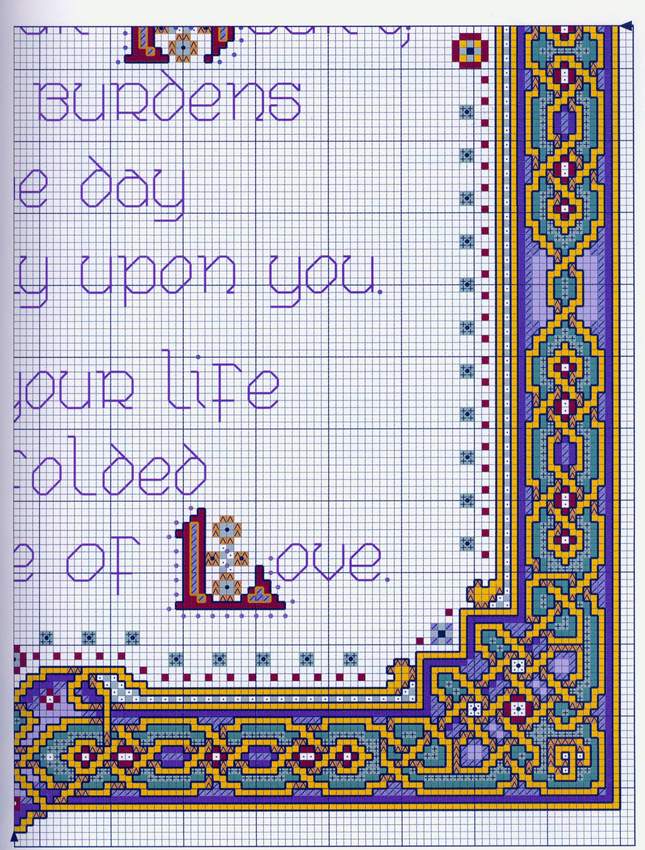 Burdens
e day
y upon you.
your life
folded
e of Love.